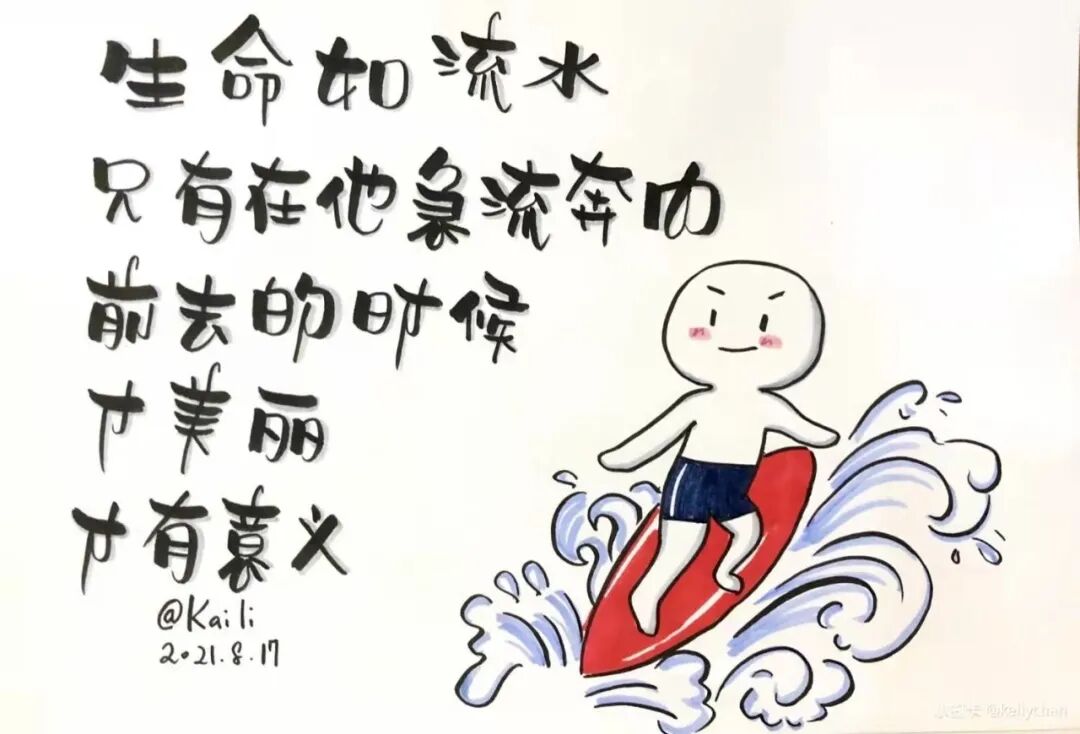 生命如流水
只有在他急流奔向
前去的时候
才美丽
才有意义
@Kaili
2021.8.17
@kellychan